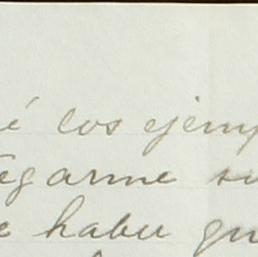 é los ejemp
egarme su
e haber qu